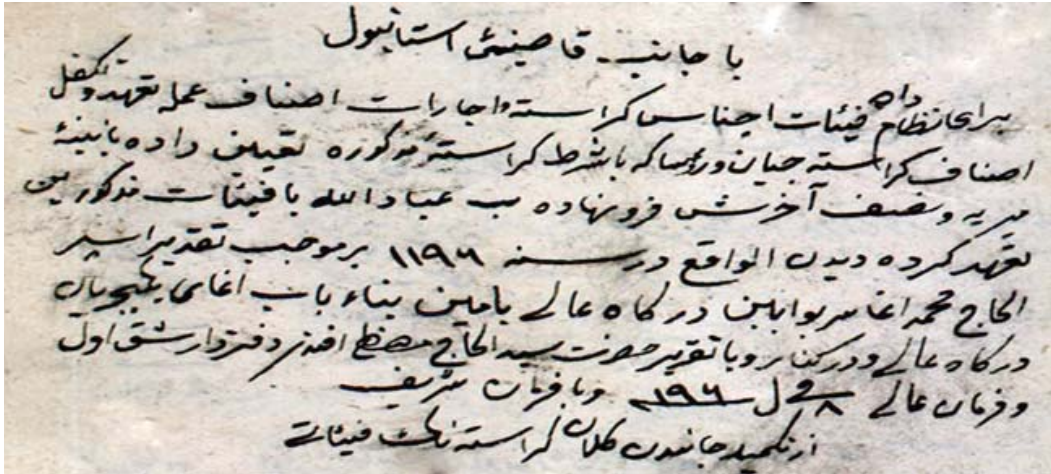 با جانب قاضیئ استانبول
برای نظام دادن فیئات اجناس کراسته و اجارات اصناف عمله تعهد و تکفل
اصناف کراسته جیان و رؤسا که با شرط کراستهٔ مذکوره تعیین داده بابنیهٔ
میریه و نصف آخرش فرونهاده بـ عباد الله با فیئات مذکورین
تعهد کرده دیدن الواقع در سنه ١١٩٦ بر موجب تقدیر اسیر
الحاج محمد اغا سر بوابین درکاه عالی بامین بناء باب اغای یکیچریان
درکاه عالی و در کنار و با تقریر حضرت سید الحاج مصطفی افندی دفتردار شق اول
و فرمان عالی ٨ ل ١٩٦ و با فرمان شریف
از نکمید جانبدن کلان کراسته نک فیئاتی